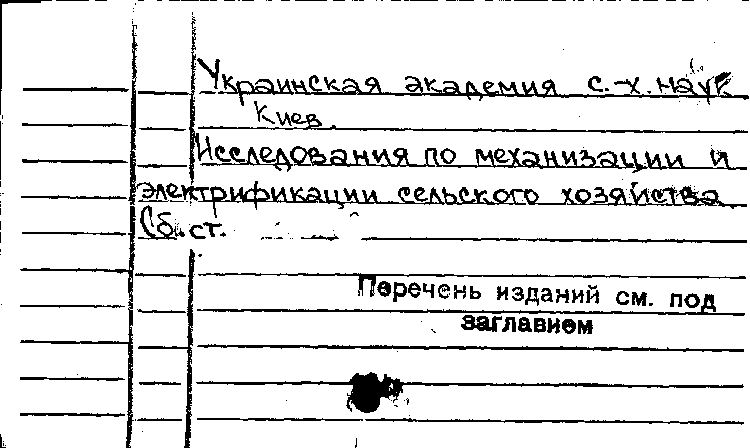 Украинская академия с.-х. наук
Киев.
Исследования по механизации и
электрификации сельского хозяйства.
Сб. ст.
Перечень изданий см. под
заглавием